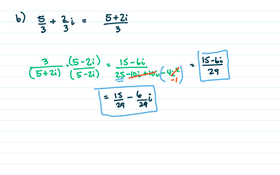 b) 5/3 + 2/3 i = (5+2i)/3
3/(5+2i) · (5-2i)/(5-2i) = (15-6i)/(25 -10i +10i (-4i²)) = (15-6i)/29
-1
= 15/29 - 6/29 i